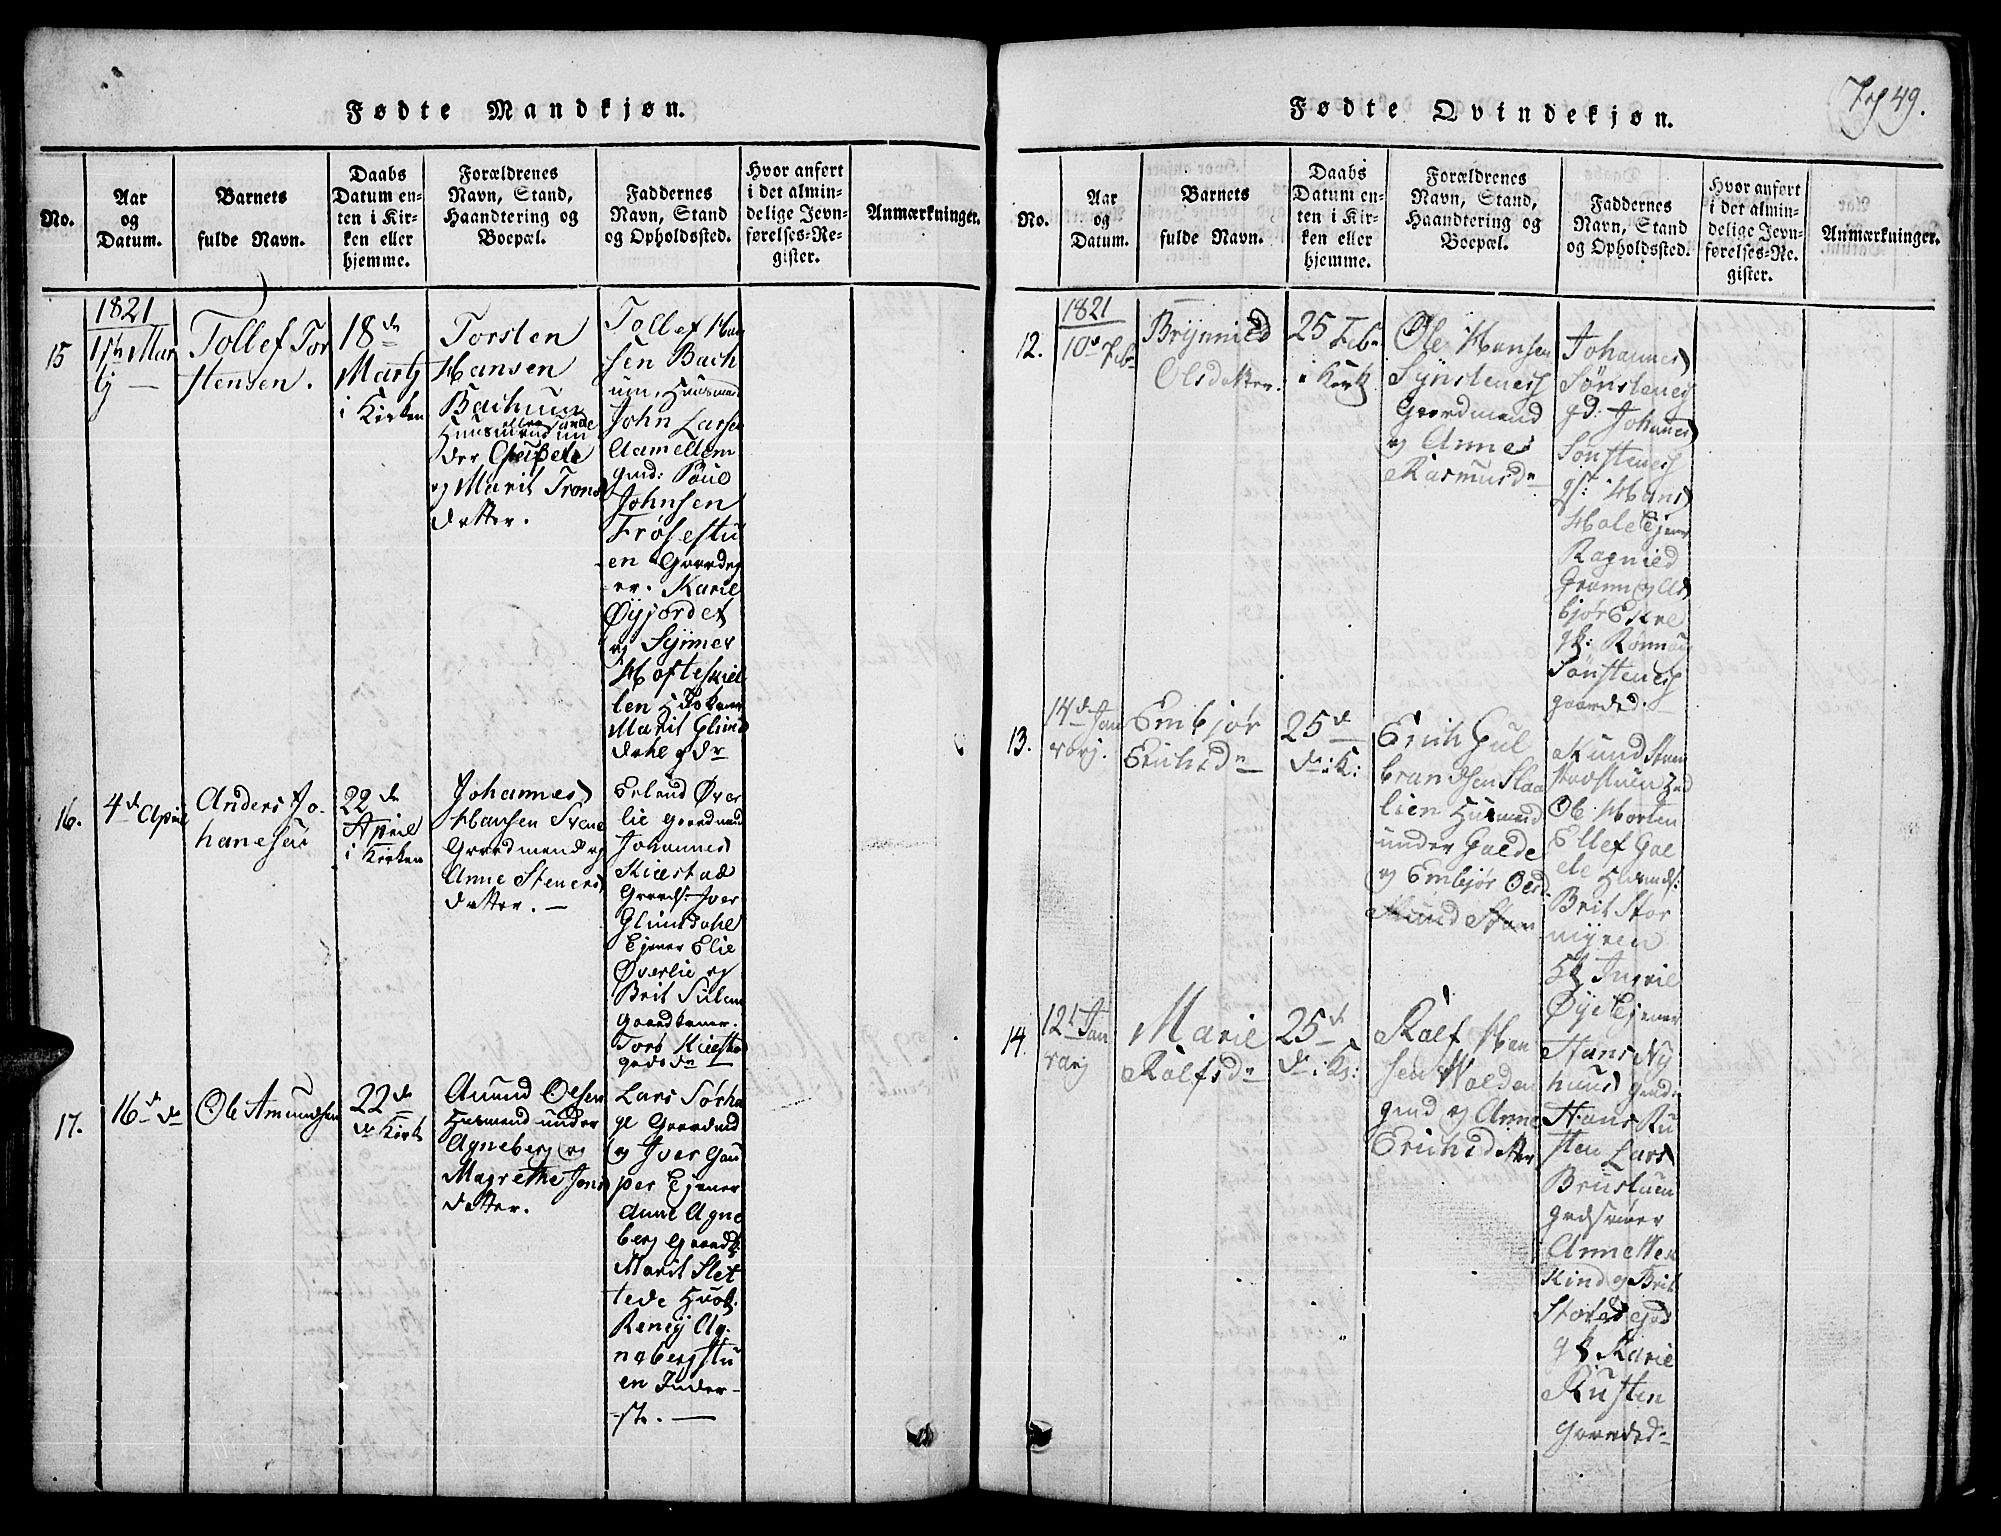 Fødte Mandkjøn.
No.
Aar
og
Datum.
Barnets
fulde Navn.
Daabs
Datum en-
ten i Kir-
ken eller
hjemme.
Forældrenes
Navn, Stand,
Haandtering og
Boepæl.
Faddernes
Navn, Stand
og Opholdssted.
Hvor anført
i det almin-
delige Jevn-
førelses-Re-
gister.
Anmærkninger.
15
1821
Tollef Tor
stensen.
18de
Marty
i Kirken
Torsten
Hansen
Bachum
Huusmand un
der
og Marit Trons
datter.
Tollef Han
sen Bach
um, Huusmand
John Larsen
Aamellem
gmd: Poul
Johnsen
Frøsestu
en Gaardbr
er. Karie
Øyjordet
og Synner
Hofteskiel
len
Marit Glims
dahl gdr
16.
4de April
Anders Jo-
hanesen
22de
April
i Kirken
Johannes
Hansen
Gaardmand og
Anne Steners
datter. —
Erland Øver
lie gaardmand
Johannes
Kiæstad
Gaards. Iver
Glimsdahl
Ejener Elie
Øverlie og
Brit Sulem
gaardkoner.
Toro Kiæstad
gards dr
17.
16de do
Ole Amundsen
22de
do Kirk
Amund Olsen
Husmand under
Agneberg og
Magrethe Jons
datter.
Lars Sørha
ge Gaardmd
og Iver Gau
per Ejener
Anne Agne
berg Gaardk:
Marit Slet
tede Huok.
Reney Ag-
neberg stu
en Inder-
st. —
Fødte Qvindekjøn.
49.
No.
Aar
og
Datum.
Barnets
fulde Navn.
Daabs
Datum en-
ten i Kir-
ken eller
hjemme.
Forældrenes
Navn, Stand,
Haandtering og
Boepæl.
Faddernes
Navn, Stand
og Opholdssted.
Hvor anført
i det almin-
delige Jevn-
førelses-Re-
gister.
Anmærkninger.
12.
1821
10de Feb
Brynnied
Olsdatter.
25 Feb
i Kirk
Ole Hansen
Synstenes
Gaardmand
og Anne
Rasmusdr
Johannes
Sønstenes
gd. Johannes
Sønstenes
gs: Hans
Hole Ejener
Ragnied
Gram og As
bjør Ekre
gk: Rønnau
Sønstenes
gaardsd. —
13.
14de Jan
varj.
Embjør
Erichsdr
25de
do:K:
Erich Gul
brandsen Slaa
lien Husmand
under Galde
og Embjør Olsd
Amund Steen
Ole Horten
Ellef Gal
de
Brit Stor
myren
Hk Ingrie
Øye Ejener
14.
12te Jan
varj
Marie
Rolfsdr
25de
do:K:
Rolf
sen Volden
gmd og Anne
Erichsdatter
Hans Ny
huus gmd:
Hans Ru
sten Lars
Brustuen
Anne
kind og Brit
gk Karie
Rusten
Gaardsd